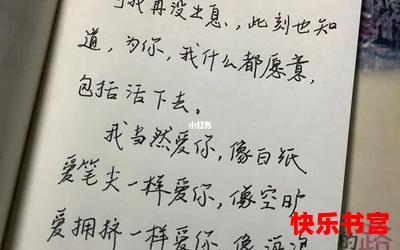 我再没出息，此刻也知
道，为你，我什么都愿意，
包括活下去。
小红书
我当然爱你，像白纸
爱笔尖一样爱你，像空旷
爱拥挤一样爱你，像
快乐书宫